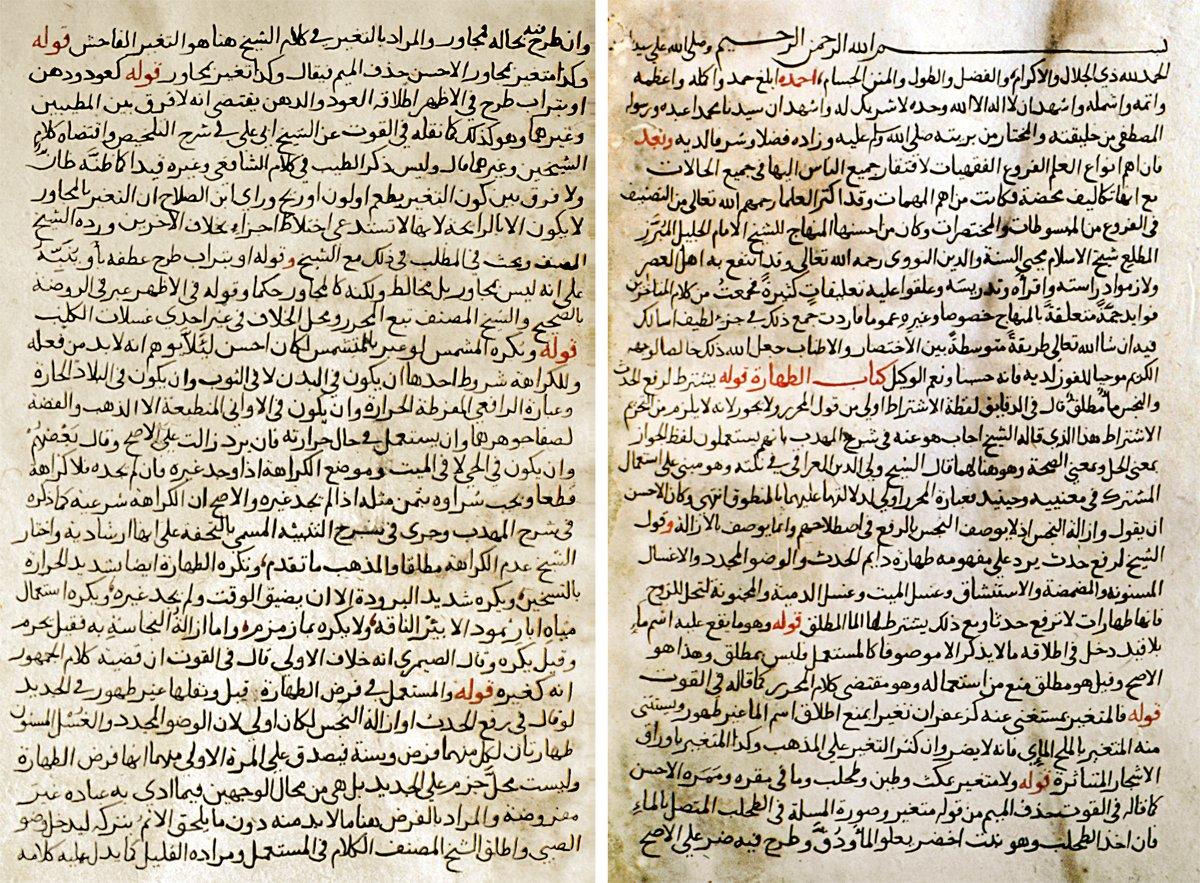 بسم الله الرحمن الرحيم وصلى الله على سيدنا
الحمد لله ذي الجلال والاكرام والفضل والطول والمنن الجسام احمده ابلغ حمد واكمله واعظمه
واتمه واشمله واشهد ان لا اله الا الله وحده لا شريك له واشهد ان سيدنا محمدا عبده ورسوله
المصطفى من خليقته والمختار من بريته صلى الله وسلم عليه وزاده فضلا وشرفا لديه وبعد
فان اهم انواع العلم الفروع الفقهيات لافتقار جميع الناس اليها في جميع الحالات
مع انها تكاليف محضة فكانت من اهم المهمات وقد اكثر العلما رحمهم الله تعالى من التصنيف
في الفروع من المبسوطات والمختصرات وكان من احسنها المنهاج للشيخ الامام الجليل المبرز
المطلع شيخ الاسلام محيي السنة والدين النووي رحمه الله تعالى وقد انتفع به اهل العصر
ولازموا دراسته واقرأه وتدريسه وعلقوا عليه تعليقات كثيرة فجمعت من كلام المتاخرين
فوايد جمة متعلقة بالمنهاج خصوصا وغيره عموما فاردت جمع ذلك في جزء لطيف اسالك
فيه ان شا الله تعالى طريقة متوسطة بين الاختصار والاطناب جعل الله ذلك خالصا لوجهه
الكريم موجبا للفوز لديه فانه حسبنا ونعم الوكيل كتاب الطهارة قوله يشترط لرفع الحدث
والنجس ما مطلق قال في الدقايق لفظة الاشتراط اولى من قول المحرر لا يجوز لانه لا يلزم من التحريم
الاشتراط هذا الذي قاله الشيخ اجاب هو عنه في شرح المهذب بانهم يستعملون لفظ الجواز
بمعنى الحل وبمعنى الصحة وهو هنا لهما قال الشيخ ولي الدين العراقي في نكته وهو مبني على استعمال
المشترك في معنييه وحينيذ فعبارة المحرر اولى لدلالتها عليهما بالمنطوق انتهى وكان الاحسن
ان يقول وازالة النجس اذ لا يوصف النجس بالرفع في اصطلاحهم وانما يوصف بالازالة وقول
الشيخ لرفع حدث يرد على مفهومه طهارة دايم الحدث والوضو المجدد والاغسال
المسنونة والمضمضة والاستنشاق وغسل الميت وغسل الذمية والمجنونة لتحل للزوج
فانها طهارات لا ترفع حدثا ومع ذلك يشترط لها الما المطلق قوله وهو ما يقع عليه اسم ماء
بلا قيد دخل في اطلاقه ما لا يذكر الا موصوفا كالمستعمل فليس بمطلق وهذا هو
الاصح وقيل هو مطلق منع من استعماله وهو مقتضى كلام المحرر كما قاله في القوت
قوله فالمتغير بمستغنى عنه كزعفران تغيرا يمنع اطلاق اسم الما غير طهور ويستثنى
منه المتغير بالملح المايي فانه لا يضر وان كثر التغير على المذهب وكذا المتغير باوراق
الاشجار المتناثرة قوله ولا متغير بمكث وطين وطحلب وما في مقره وممره الاحسن
كما قاله في القوت حذف الميم من قوله متغير وصورة المسلة في الطحلب المتصل بالماء
فان اخذ الطحلب وهو نبت اخضر يعلو الما ودق وطرح فيه ضر على الاصح
وان طرح فيه بحاله فمجاور والمراد بالتغير في كلام الشيخ هنا هو التغير الفاحش قوله
وكذا متغير بمجاور الاحسن حذف الميم فيقال وكذا تغير بمجاور قوله كعود ودهن
او بتراب طرح في الاظهر اطلاقه العود والدهن يقتضى انه لا فرق بين المطيبين
وغيرهما وهو كذلك كما نقله في القوت عن الشيخ ابي علي في شرح التلخيص واقتضاه كلام
الشيخين وغيرهما قال وليس ذكر الطيب في كلام الشافعي وغيره قيدا كما ظنه ظان
ولا فرق بين كون التغير بطعم او لون او ريح وراى ابن الصلاح ان التغير بالمجاور
لا يكون الا بالرايحة لانها لا تستدعي اختلاط اجزاء بخلاف الاخرين ورده الشيخ
المصنف وبحث في المطلب في ذلك مع الشيخ وقوله او بتراب طرح عطفه
على انه ليس بمجاور بل مخالط ولكنه كالمجاور حكما وقوله في الاظهر عبر في الروضة
بالصحيح والشيخ المصنف تبع المحرر ومحل الخلاف في غير احدى غسلات الكلب
قوله ويكره المشمس لو عبر بالمتشمس لكان احسن ليلا يوهم انه لا بد من فعله
وللكراهة شروط احدها ان يكون في البدن لا في الثوب وان يكون في البلاد الحارة
وعبارة الرافعي المفرطة الحرارة وان يكون في الاواني المنطبعة الا الذهب والفضة
لصفا جوهرهما وان يستعمل في حال حرارته فان برد زالت على الاصح وقال بعضهم
وان يكون في الحي لا في الميت وموضع الكراهة اذا وجد غيره فان لم يجده فلا كراهة
قطعا ويجب شراوه بثمن مثله اذا لم يجد غيره والاصح ان الكراهة شرعية كما ذكره
في شرح المهذب وجرى في شرح التنبيه المسمى بالتحفة على انها ارشادية واختار
الشيخ عدم الكراهة مطلقا والمذهب ما تقدم وتكره الطهارة ايضا بشديد الحرارة
بالتسخين ويكره شديد البرودة الا ان يضيق الوقت ولم يجد غيره ويكره استعمال
مياه ابار ثمود الا بئر الناقة ولا يكره بماء زمزم واما ازالة النجاسة به فقيل يحرم
وقيل يكره وقال الصيمري انه خلاف الاولى قال في القوت ان قضية كلام الجمهور
انه كغيره قوله والمستعمل في فرض الطهارة قيل ونفلها غير طهور في الجديد
لو قال في رفع الحدث او ازالة النجس لكان اولى لان الوضو المجدد والغسل المسنون
طهارتان لكل منهما فرض وسنة فيصدق على المرة الاولى منهما انها فرض الطهارة
وليست محل جزم على الجديد بل هي من محال الوجهين فيما ادى به عبادة غير
مفروضة والمراد بالفرض هنا ما لا بد منه دون ما يلحق الاثم بتركه ليدخل وضو
الصبي واطلق الشيخ المصنف الكلام في المستعمل ومراده القليل كما يدل عليه كلامه